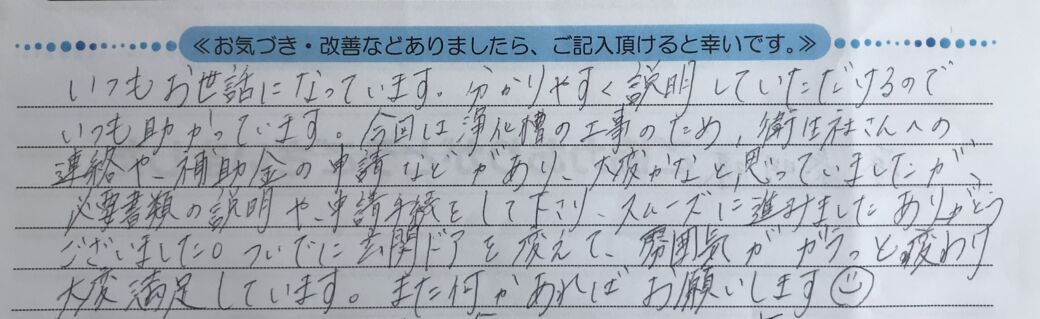 ≪お気づき・改善などありましたら、ご記入頂けると幸いです。≫
いつもお世話になっています。分かりやすく説明していただけるので
いつも助かっています。今回は浄化槽の工事のため、衛生社さんへの
連絡や、補助金の申請などがあり、大変かなと思っていましたが、
必要書類の説明や、申請手続をして下さり、スムーズに進みました ありがとう
ございました。ついでに玄関ドアを変えて、雰囲気がガラっと変わり
大変満足しています。また何かあればお願いします☺